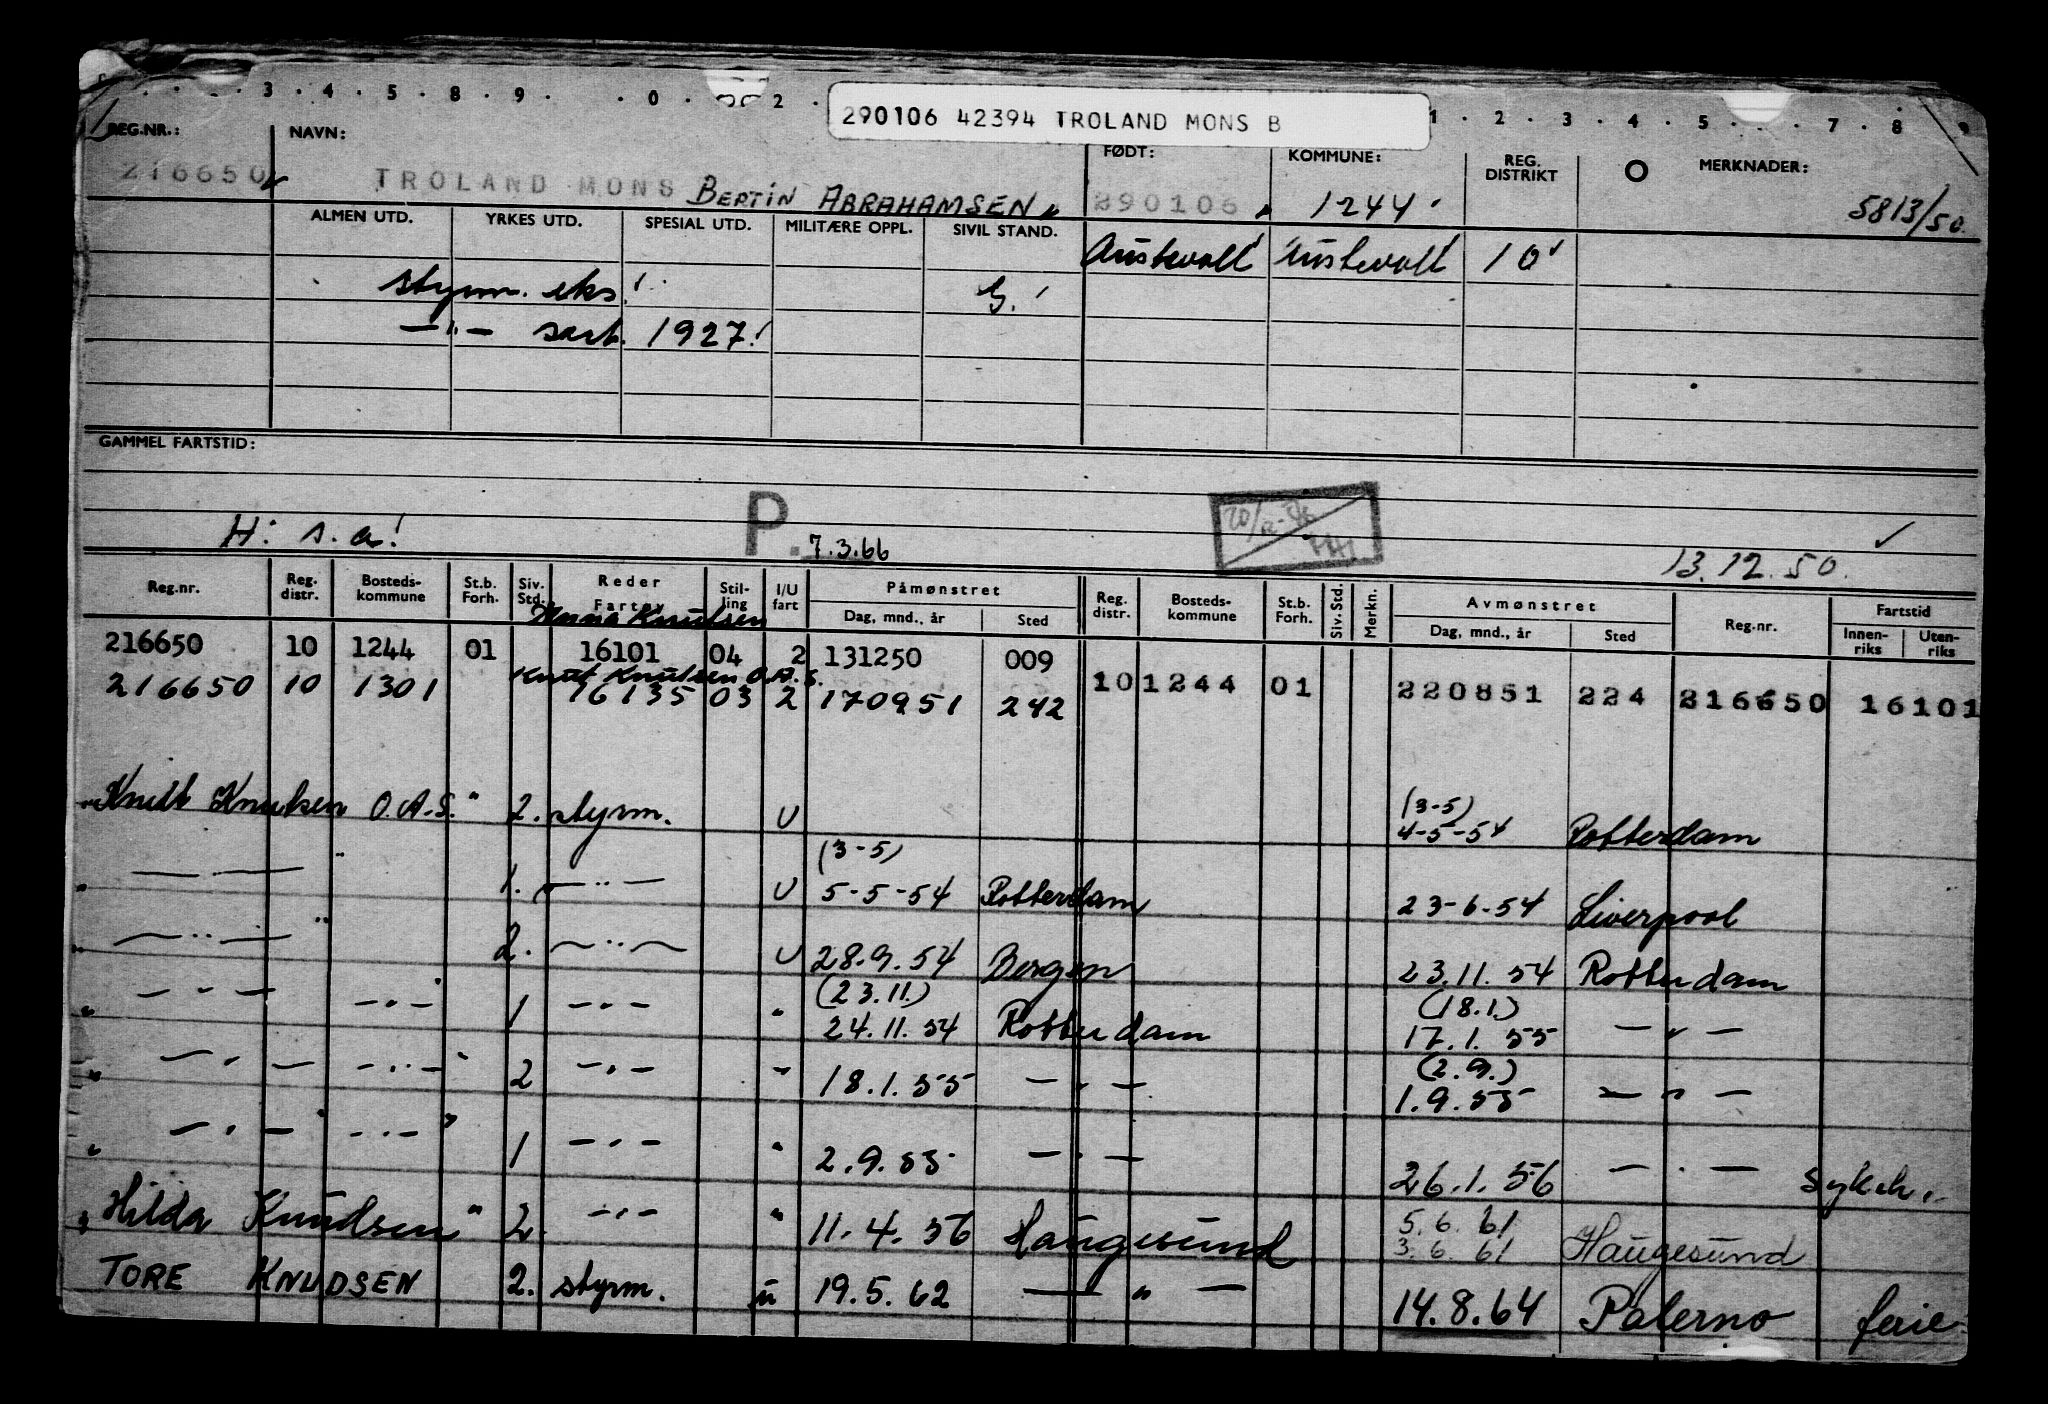 3 . 4 . 5 . 8 . 9 . . 0 . 2 . 1 . 2 . 3 . 4 . 5 . . 7 . 8 . 9
290106 42394 TROLAND MONS B
REG.NR.: NAVN: FØDT: KOMMUNE: REG. DISTRIKT O MERKNADER:
216650 TROLAND MONS BERTIN ABRAHAMSEN 290106 1244 5813/50
ALMEN UTD. YRKES UTD. SPESIAL UTD. MILITÆRE OPPL. SIVIL STAND. Austevoll Austevoll 10
styrm. eks. G.
—"— sert. 1927
GAMMEL FARTSTID:
H: s.a! P. 7.3.66 13.12.50.
Reg.nr. Reg. distr. Bosteds-kommune St.b. Forh. Siv. Std. Reder Fartøy Stil-ling I/U fart Påmønstret Dag, mnd., år Sted Reg. distr. Bosteds-kommune St.b. Forh. Siv. Std. Merkn. Avmønstret Dag, mnd., år Sted Reg.nr. Fartstid Innen-riks Uten-riks
Hanna Knudsen
216650 10 1244 01 16101 04 2 131250 009 10 1244 01 220851 224 216650 16101
Knut Knutsen O.A.S.
216650 10 1301 16135 03 2 170951 242
"Knut Knutsen O.A.S." 2. styrm. U (3-5) 4-5-54 Rotterdam
" —"— " 1. —"— U (3-5) 5-5-54 Rotterdam 23-6-54 Liverpool
" —"— " 2. —"— U 28.9.54 Bergen 23.11.54 Rotterdam
" —"— —"— " 1 —"— " (23.11.) 24.11.54 Rotterdam (18.1.) 17.1.55 —"—
" —"— —"— " 2 —"— " 18.1.55 —"— (2.9.) 1.9.55 —"—
" —"— —"— " 1 —"— " 2.9.55 —"— 26.1.56 —"— sykeh.
" Hilda Knudsen " 2. —"— " 11.4.56 Haugesund 5.6.61 3.6.61 Haugesund
TORE KNUDSEN 2. styrm. u 19.5.62 —"— 14.8.64 Palermo ferie